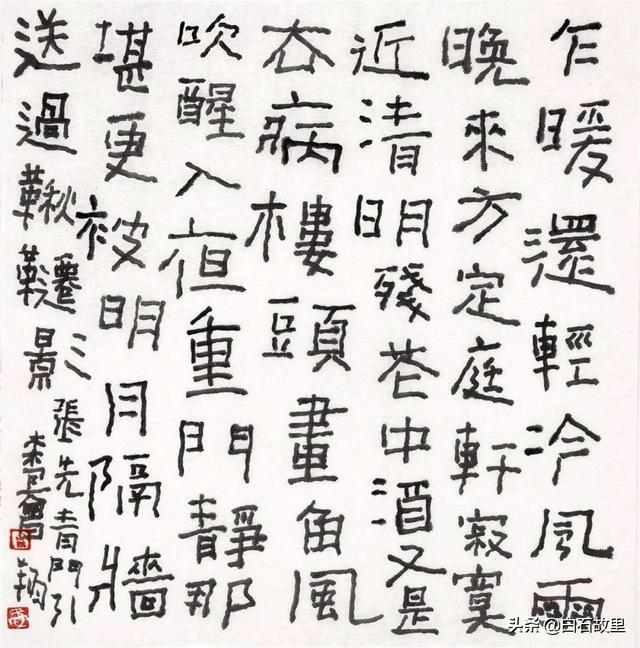 乍暖還輕冷風雨
晚來方定庭軒寂寞
近清明殘花中酒又是
去病樓頭畫角風
吹醒入夜重門靜那
堪更被明月隔牆
送過鞦韆影
張先青門引
曾翔
头条 @白石故里